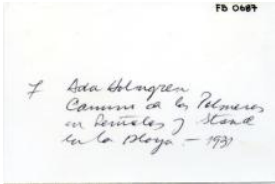 FB 0687
7 Ada Holmgren
Camino de las Palmeras
en Penales y Stand
en la playa. - 1931